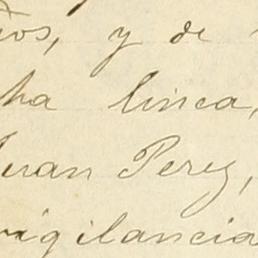 ios, y de
ha linea,
Juan Perez,
vigilancia